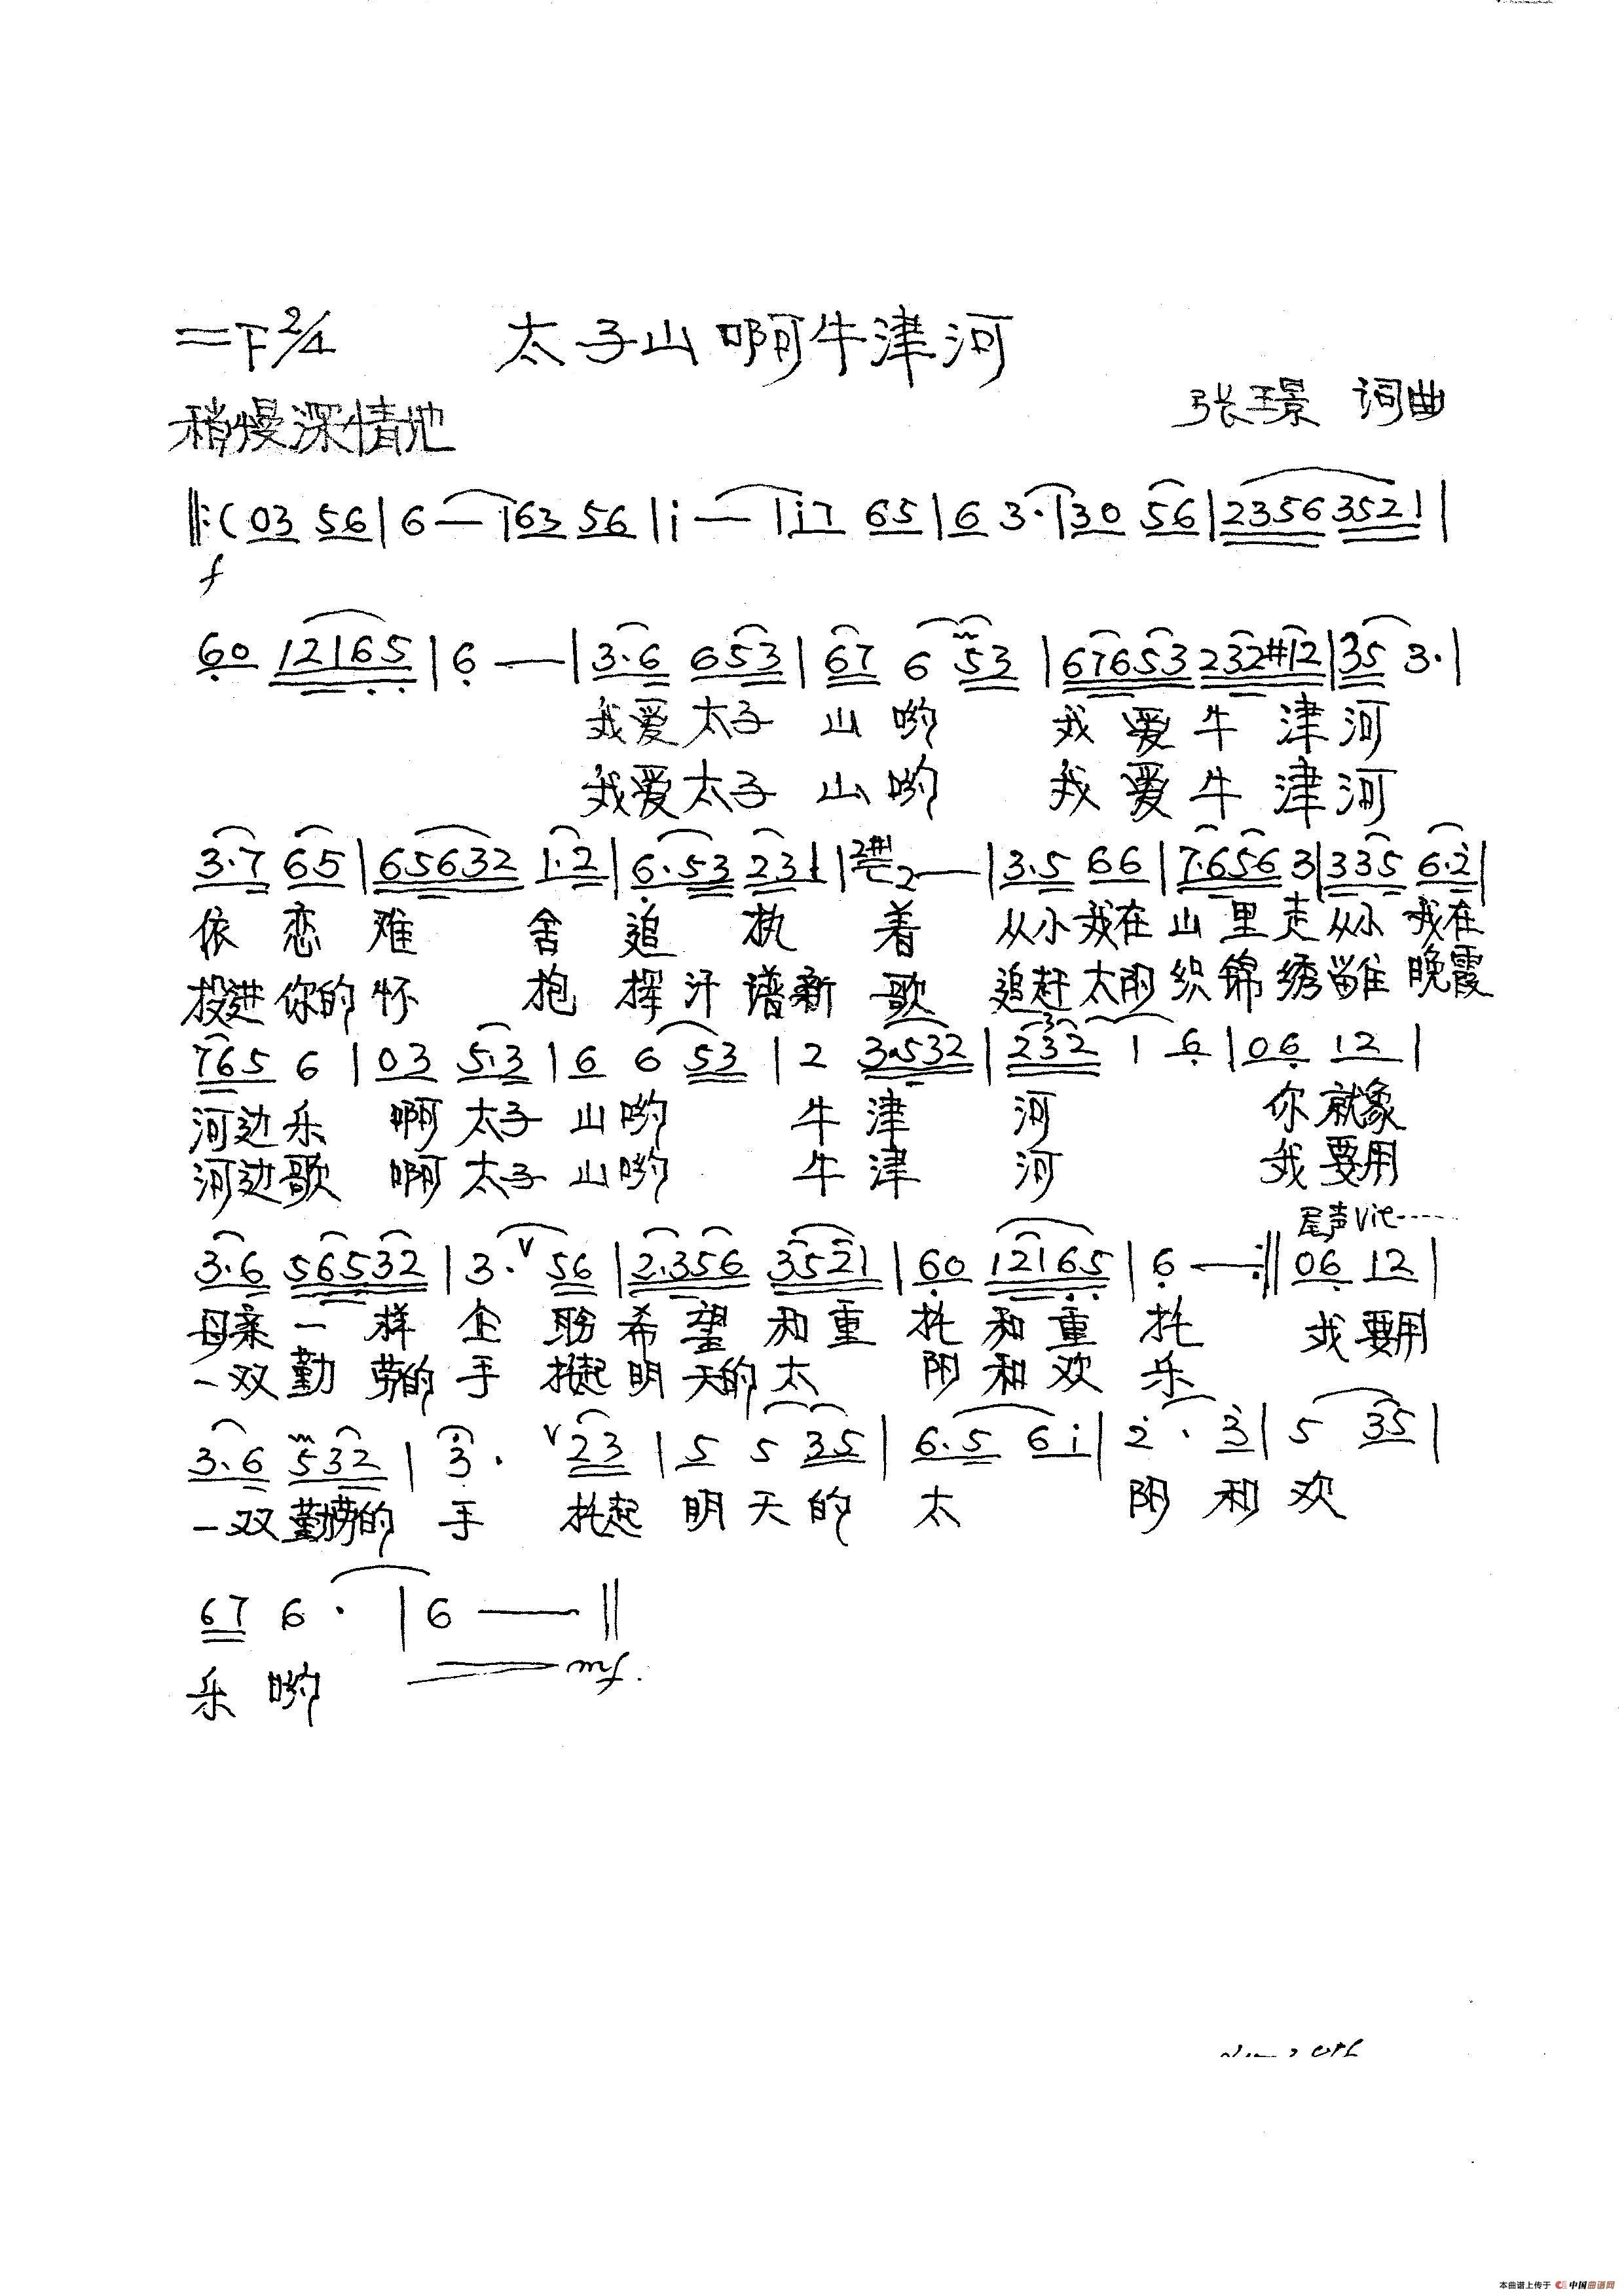 =F 2/4 太子山啊牛津河
稍慢深情地 张璟 词曲
‖:( 03 56 | 6 — | 63 56 | i — | i7 65 | 6 3· | 30 56 | 2356 3521 |
f
60 12165 | 6 — | 3·6 653 | 67 6 53 | 67653 232#12 | 35 3· |
我爱太子 山哟 我爱牛津河
我爱太子 山哟 我爱牛津河
3·7 65 | 65632 1·2 | 6·53 231 | 2#1 2 — | 3·5 66 | 7·656 3 | 335 6·2 |
依恋难 舍追 执 着 从小我在山里走从小我在
投进你的怀 抱 挥汗谱新 歌 追赶太阳织锦绣 晚霞
765 6 | 03 5·3 | 6 6 53 | 2 3·532 | 232 1 6 | 06 12 |
河边乐 啊太子山哟 牛津 河 你就象
河边歌 啊太子山哟 牛津 河 我要用
尾声Vie-----
3·6 56532 | 3· V 56 | 2·356 3521 | 60 12165 | 6 — :‖ 06 12 |
母亲一样企盼希望和重托和重托 我要用
一双勤劳的手 托起明天的太 阳和欢乐
3·6 532 | 3· V 23 | 5 5 35 | 6·5 6i | 2· 3 | 5 35 |
一双勤劳的 手 托起 明天的 太 阳和欢
67 6· | 6 — ‖
mf.
乐哟
本曲谱上传于 中国曲谱网